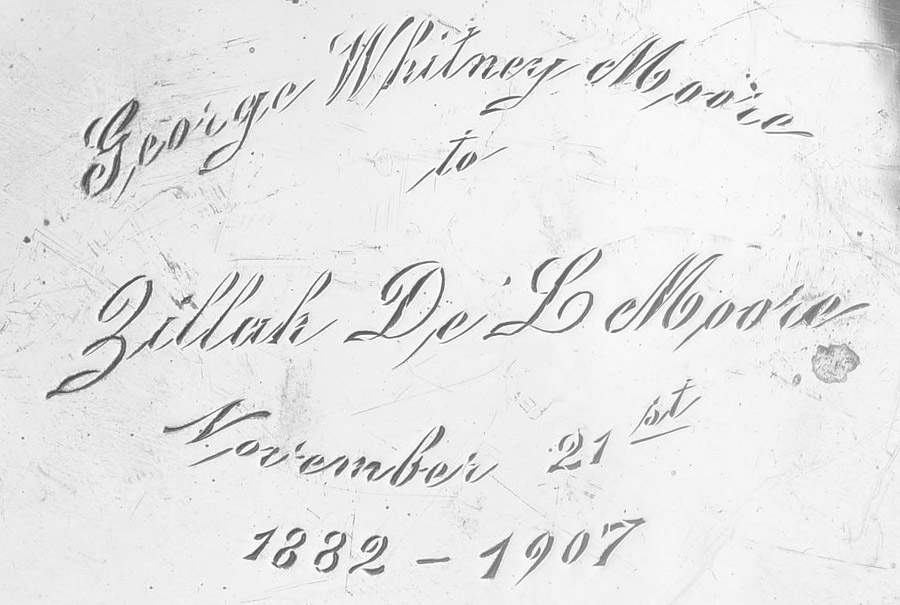 George Whitney Moore
to
Zillah De'L Moore
November 21st
1882 - 1907